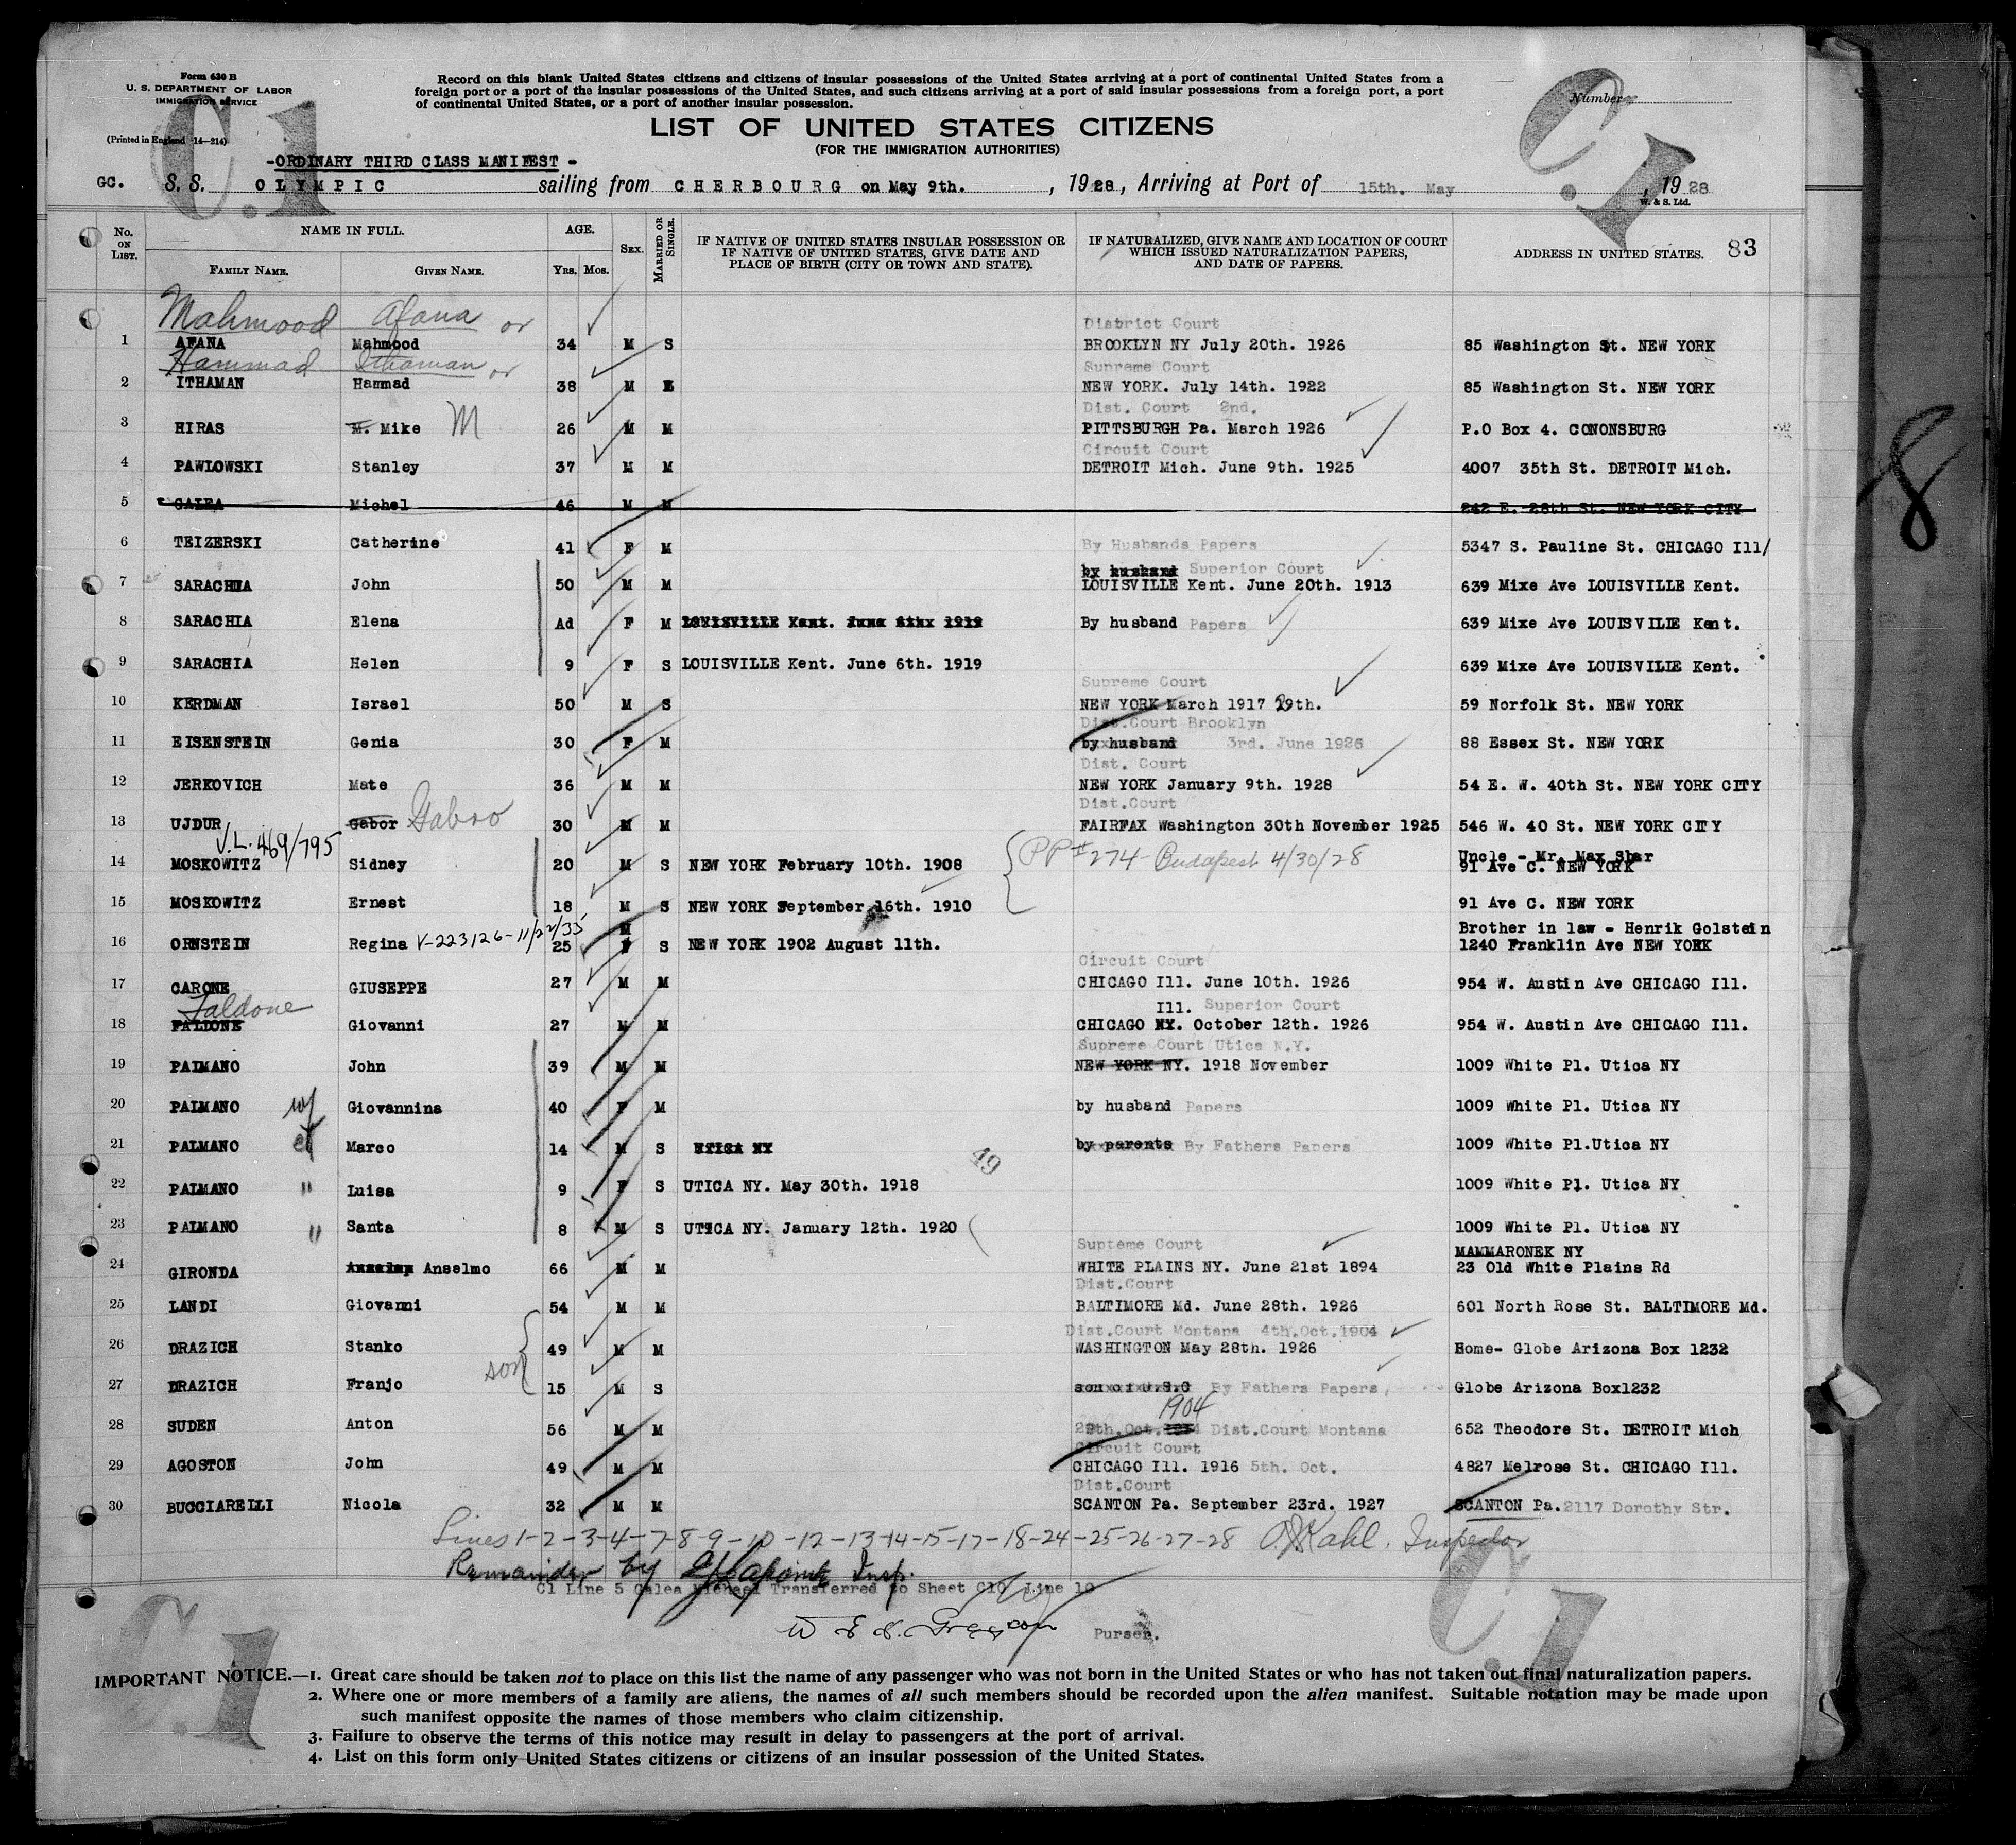 Form 630 B
U. S. DEPARTMENT OF LABOR
IMMIGRATION SERVICE
(Printed in England 14—214)
Record on this blank United States citizens and citizens of insular possessions of the United States arriving at a port of continental United States from a
foreign port or a port of the insular possessions of the United States, and such citizens arriving at a port of said insular possessions from a foreign port, a port
of continental United States, or a port of another insular possession.
Number
C.1
C.1
LIST OF UNITED STATES CITIZENS
(FOR THE IMMIGRATION AUTHORITIES)
-ORDINARY THIRD CLASS MANIFEST -
GC. S. S. OLYMPIC sailing from CHERBOURG on May 9th. , 1928, Arriving at Port of 15th. May , 1928
W. & S. Ltd.
No. ON LIST. NAME IN FULL. AGE. SEX. MARRIED OR SINGLE. IF NATIVE OF UNITED STATES INSULAR POSSESSION OR IF NATIVE OF UNITED STATES, GIVE DATE AND PLACE OF BIRTH (CITY OR TOWN AND STATE). IF NATURALIZED, GIVE NAME AND LOCATION OF COURT WHICH ISSUED NATURALIZATION PAPERS, AND DATE OF PAPERS. ADDRESS IN UNITED STATES. 83
FAMILY NAME. GIVEN NAME. YRS. MOS.
Mahmood Afana or
District Court
1 AFANA Mahmood 34 M S BROOKLYN NY July 20th. 1926 85 Washington St. NEW YORK
Hammad Ithaman or
Supreme Court
2 ITHAMAN Hammad 38 M NEW YORK. July 14th. 1922 85 Washington St. NEW YORK
Dist. Court 2nd.
3 HIRAS M. Mike M 26 M M PITTSBURGH Pa. March 1926 P.O Box 4. CONONSBURG
Circuit Court
4 PAWLOWSKI Stanley 37 M M DETROIT Mich. June 9th. 1925 4007 35th St. DETROIT Mich.
5 GALEA Michel 46 M M 242 E. 28th St. NEW YORK CITY
6 TEIZERSKI Catherine 41 F M By Husbands Papers 5347 S. Pauline St. CHICAGO Ill/
by husband Superior Court
7 SARACHIA John 50 M M LOUISVILLE Kent. June 20th. 1913 639 Mixe Ave LOUISVILLE Kent.
8 SARACHIA Elena Ad F M LOUISVILLE Kent. June 6th 1919 By husband Papers 639 Mixe Ave LOUISVILLE Kent.
9 SARACHIA Helen 9 F S LOUISVILLE Kent. June 6th. 1919 639 Mixe Ave LOUISVILLE Kent.
Supreme Court
10 KERDMAN Israel 50 M S NEW YORK March 1917 29th. 59 Norfolk St. NEW YORK
Dist.Court Brooklyn
11 EISENSTEIN Genia 30 F M by husband 3rd. June 1926 88 Essex St. NEW YORK
Dist. Court
12 JERKOVICH Mate 36 M M NEW YORK January 9th. 1928 54 E. W. 40th St. NEW YORK CITY
Dist.Court
13 UJDUR Gabor Gabro 30 M M FAIRFAX Washington 30th November 1925 546 W. 40 St. NEW YORK CITY
V.L. 469/795
PP# 274 - Budapest 4/30/28
14 MOSKOWITZ Sidney 20 M S NEW YORK February 10th. 1908 Uncle - Mr. Max Sbar
91 Ave C. NEW YORK
15 MOSKOWITZ Ernest 18 M S NEW YORK September 16th. 1910 91 Ave C. NEW YORK
Brother in law - Henrik Golstein
16 ORNSTEIN Regina V-223126-11/22/35 25 M F S NEW YORK 1902 August 11th. 1240 Franklin Ave NEW YORK
Circuit Court
17 CARONE GIUSEPPE 27 M M CHICAGO Ill. June 10th. 1926 954 W. Austin Ave CHICAGO Ill.
Faldone
Ill. Superior Court
18 FALDONE Giovanni 27 M M CHICAGO NY. October 12th. 1926 954 W. Austin Ave CHICAGO Ill.
Supreme Court Utica N.Y.
19 PALMANO John 39 M M NEW YORK NY. 1918 November 1009 White Pl. Utica NY
20 PALMANO wf Giovannina 40 F M by husband Papers 1009 White Pl. Utica NY
21 PALMANO Marco 14 M S UTICA NY by parents By Fathers Papers 1009 White Pl.Utica NY
49
22 PALMANO " Luisa 9 F S UTICA NY. May 30th. 1918 1009 White Pl. Utica NY
23 PALMANO " Santa 8 M S UTICA NY. January 12th. 1920 1009 White Pl. Utica NY
Supreme Court MAMMARONEK NY
24 GIRONDA Anselmo 66 M M WHITE PLAINS NY. June 21st 1894 23 Old White Plains Rd
Dist.Court
25 LANDI Giovanni 54 M M BALTIMORE Md. June 28th. 1926 601 North Rose St. BALTIMORE Md.
Dist.Court Montana 4th.Oct.1904
26 DRAZICH Stanko 49 M M WASHINGTON May 28th. 1926 Home- Globe Arizona Box 1232
son
27 DRAZICH Franjo 15 M S son of U.S.C By Fathers Papers, Globe Arizona Box1232
1904
28 SUDEN Anton 56 M M 29th.Oct. Dist.Court Montana 652 Theodore St. DETROIT Mich
Circuit Court
29 AGOSTON John 49 M M CHICAGO Ill. 1916 5th. Oct. 4827 Melrose St. CHICAGO Ill.
Dist.Court
30 BUCCIARELLI Nicola 32 M M SCANTON Pa. September 23rd. 1927 SCANTON Pa.2117 Dorothy Str.
Lines 1-2-3-4-7-8-9-10-12-13-14-15-17-18-24-25-26-27-28 Kahl. Inspector
Remainder by Insp.
C1 Line 5 Galea Michael Transferred to Sheet C10 Line 10
Purser.
C.1
C.1
8
IMPORTANT NOTICE.—1. Great care should be taken not to place on this list the name of any passenger who was not born in the United States or who has not taken out final naturalization papers.
2. Where one or more members of a family are aliens, the names of all such members should be recorded upon the alien manifest. Suitable notation may be made upon
such manifest opposite the names of those members who claim citizenship.
3. Failure to observe the terms of this notice may result in delay to passengers at the port of arrival.
4. List on this form only United States citizens or citizens of an insular possession of the United States.